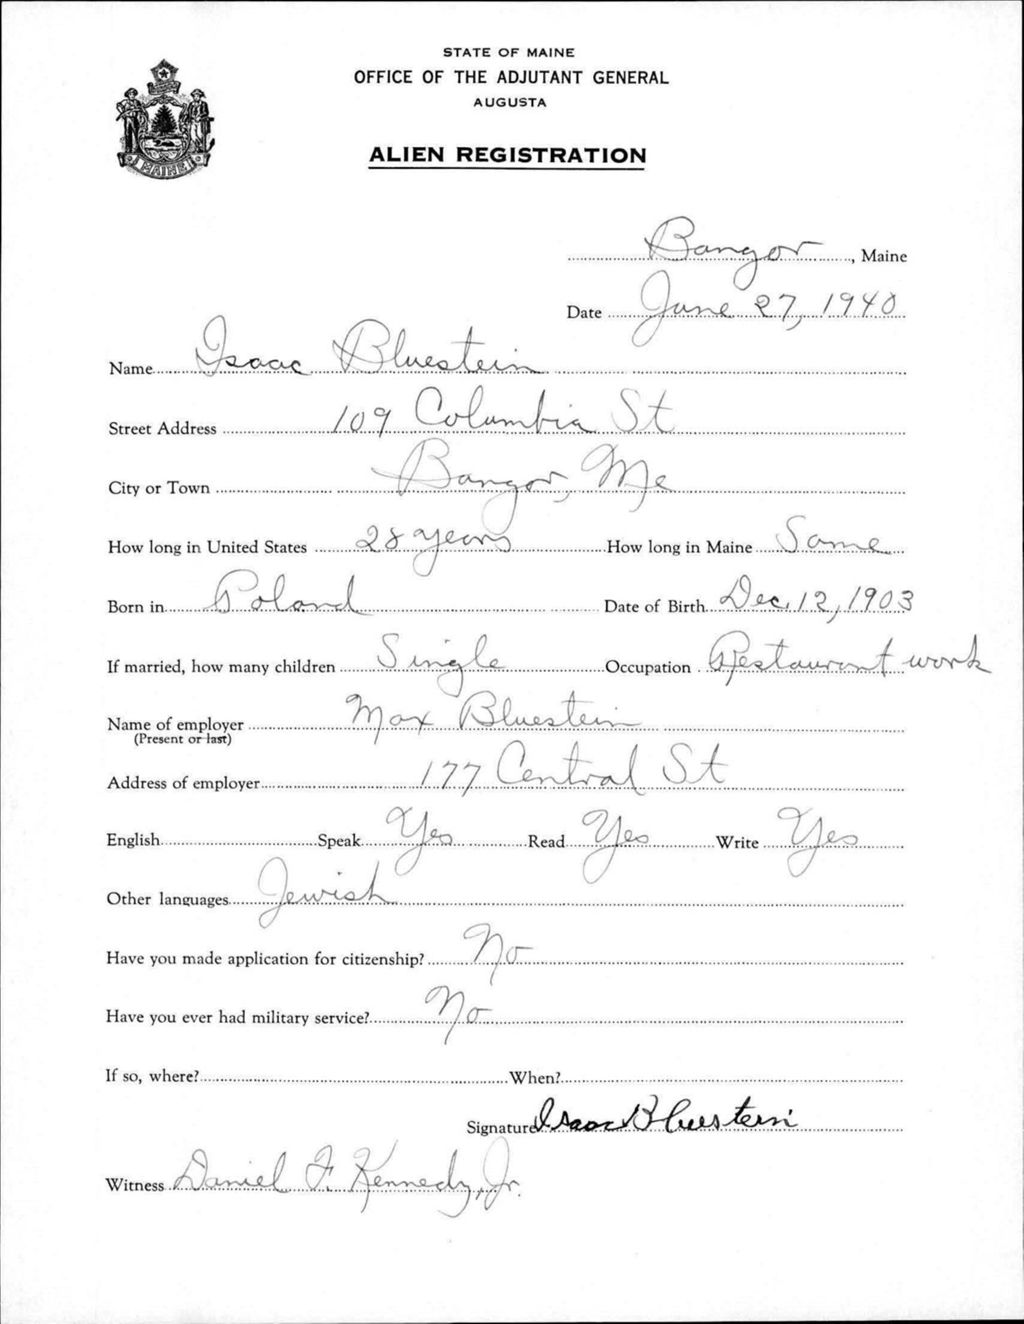 STATE OF MAINE
OFFICE OF THE ADJUTANT GENERAL
AUGUSTA
ALIEN REGISTRATION
MAINE
Bangor, Maine
Date June 27, 1940
Name Isaac Bluestein
Street Address 109 Columbia St
City or Town Bangor, Me
How long in United States 28 years How long in Maine Same
Born in Poland Date of Birth Dec. 12, 1903
If married, how many children Single Occupation Restaurant work
Name of employer Max Bluestein
(Present or last)
Address of employer 177 Central St
English Speak Yes Read Yes Write Yes
Other languages Jewish
Have you made application for citizenship? No
Have you ever had military service? No
If so, where? When?
Signature Isaac Bluestein
Witness Daniel F. Kennedy, Jr.